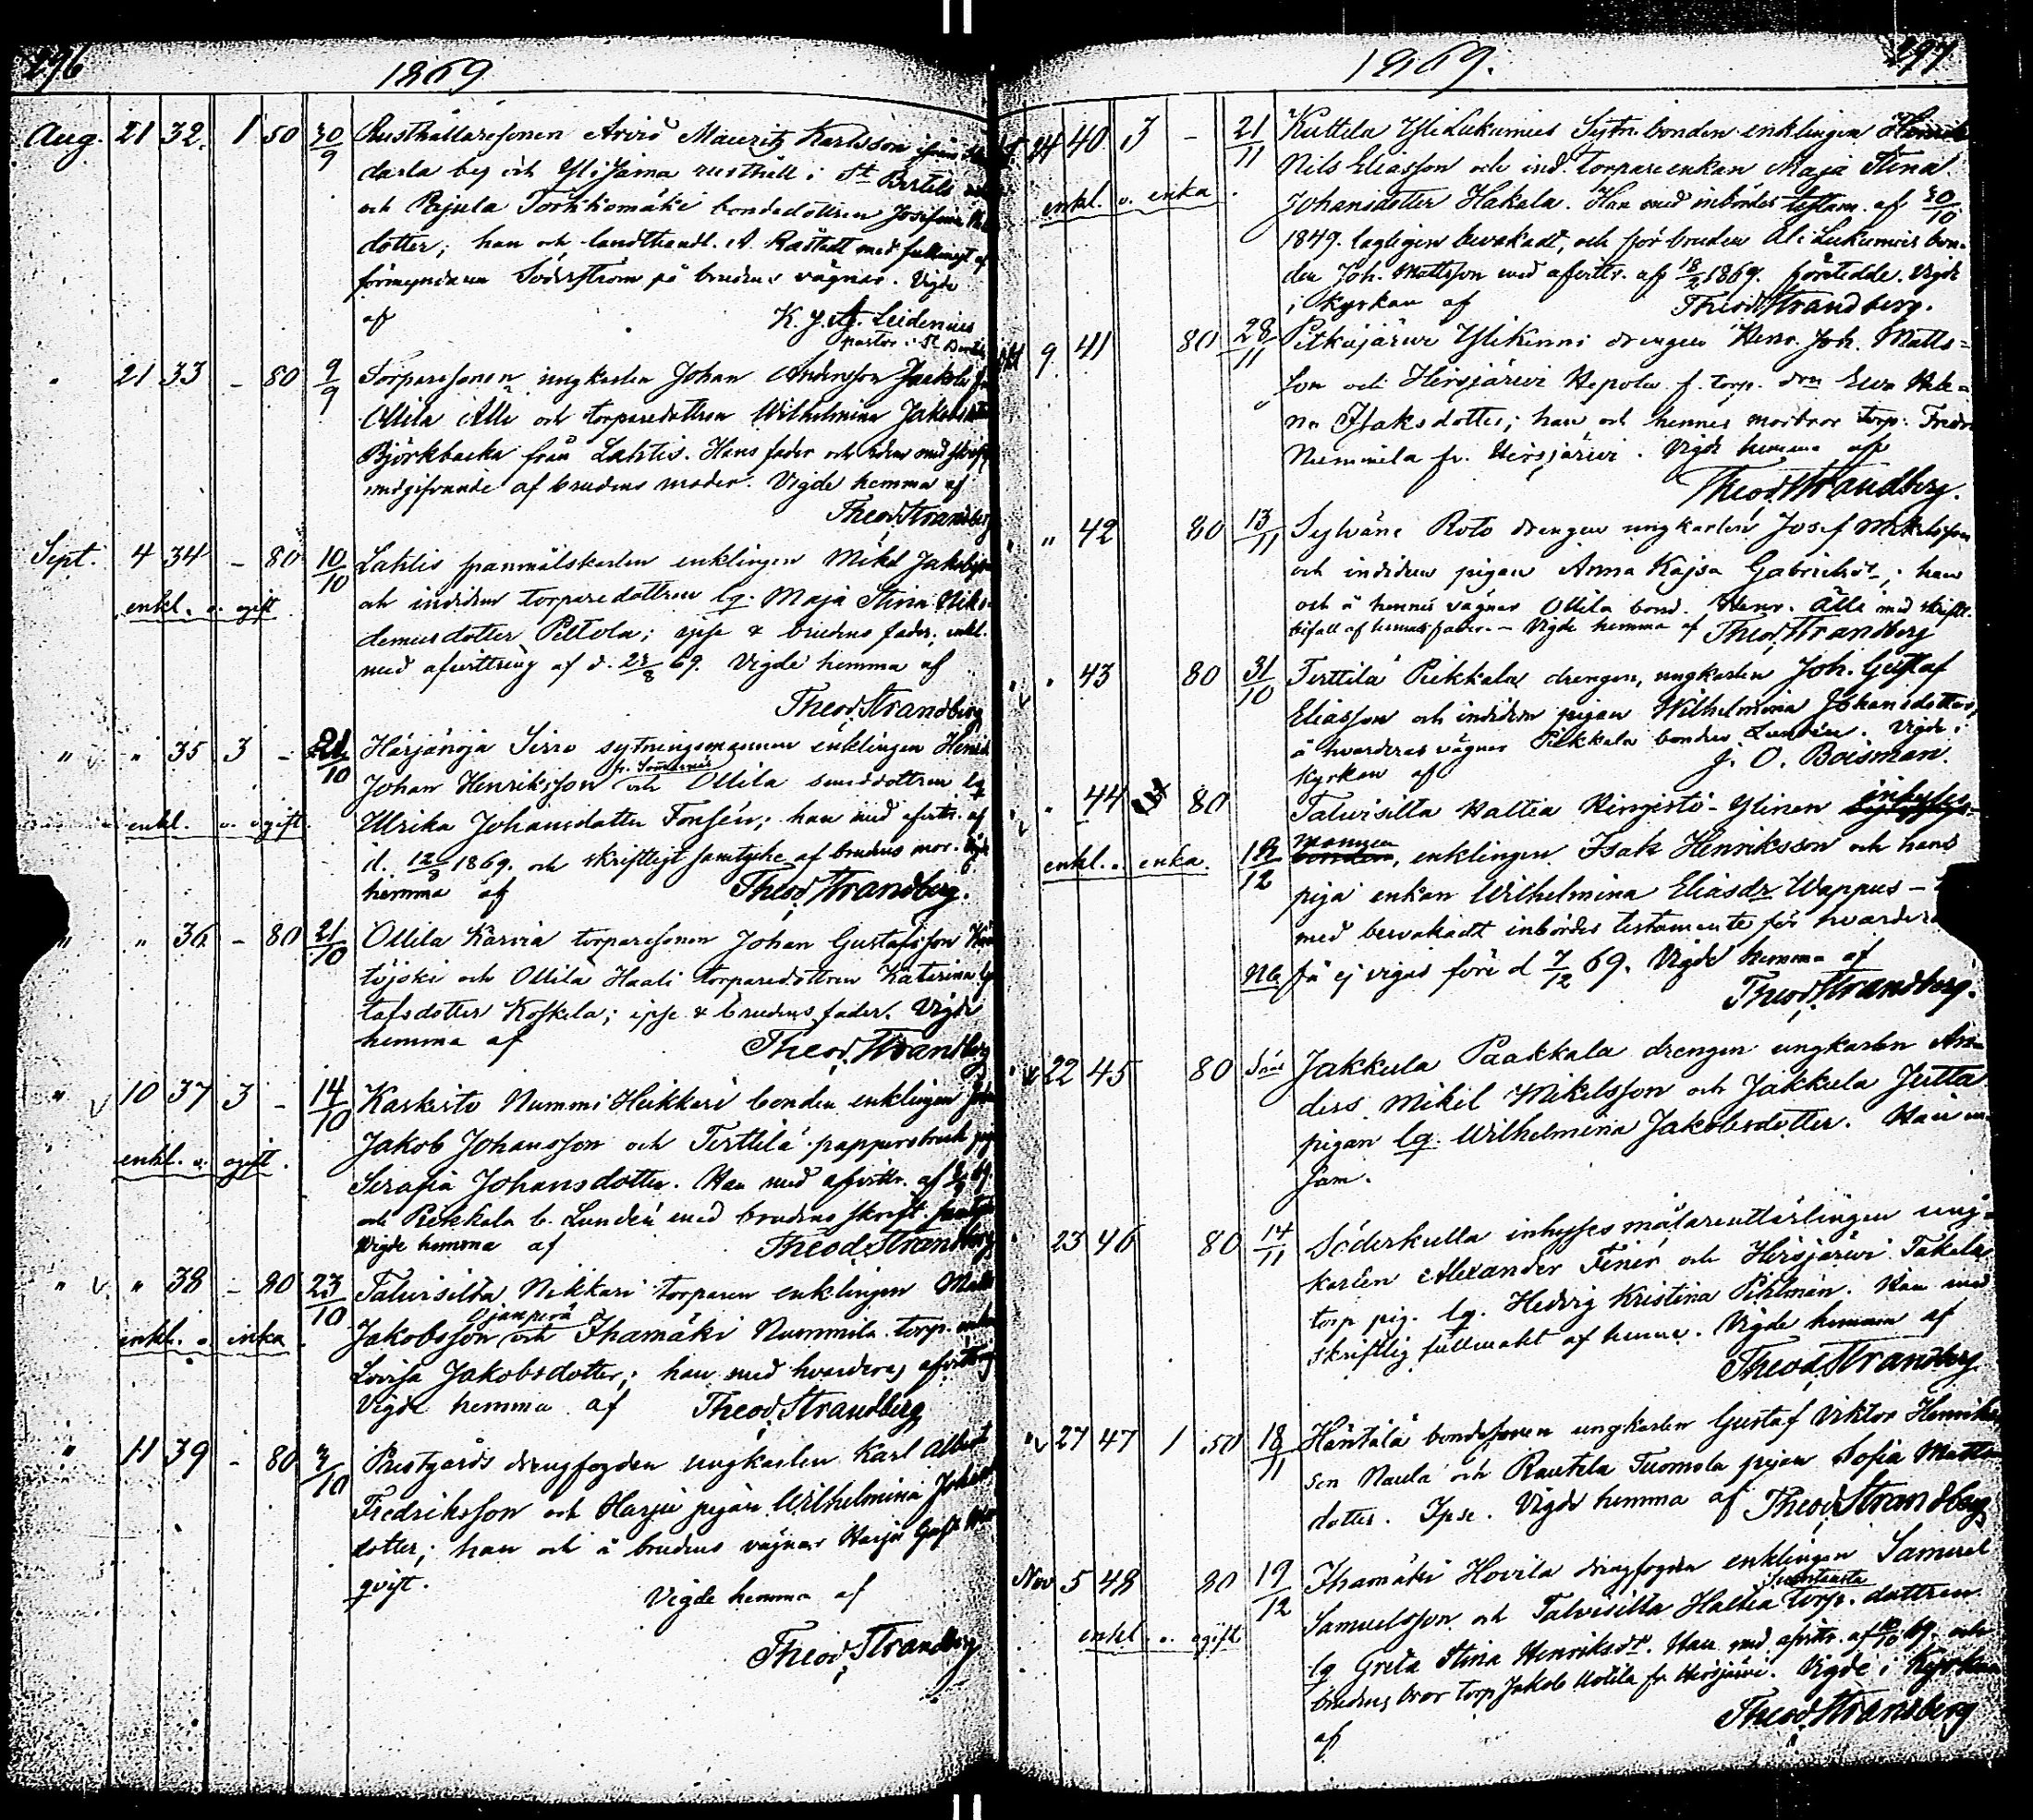 196
1869
Aug. 21 32. 1 50 30/9 Rusthållaresonen Arvid Mauritz Karlsson ifrån
darla by och Yli Jáma rusthåll i St Bertils
och Pejula Torkkomäki bondedottren Josefina
dotter; han och landthandl. A. Rastadt med fullmagt af
förmyndaren Söderström på brudens vägnar. Vigde
af K. J. A. Leidenius
pastor i St Bertils
" 21 33 – 80 9/9 Torparesonen ungkarlen Johan Andersson Jaakola fr.
Ollila Alli och torparedottren Wilhelmina Jakobsdotter
Björkbacka från Lahtis. Hans fader och med skriftl.
medgifvande af brudens moder. Vigde hemma af
Theod. Strandberg
Sept. 4 34 – 80 10/10 Lahtis spanmålskarlen enklingen Mikel Jakobsson
enkl. o. ogift och torparedottren lq. Maja Stina Niko-
demusdotter Peltola; ipse & brudens fader; enkl.
med afvittring af d. 23/8 69. Vigde hemma af
Theod. Strandberg
" " 35 3 – 21/10 Härjänoja Sirro sytningsmannen enklingen Henrik
fr. Somerniemi
Johan Henriksson och Ollila dottren lq
enkl. o. ogift. Ulrika Johansdotter Fonsén; han med afvittr. af
d. 12/8 1869. och skriftligt samtycke af brudens mor. Vigde
hemma af Theod. Strandberg.
" " 36 – 80 21/10 Ollila Karvia torparesonen Johan Gustafsson
töjoki och Ollila Haali torparedottren Katerina Gus-
tafsdotter Koskela; ipse & brudens fader. Vigde
hemma af Theod. Strandberg
" 10 37 3 – 14/10 Kaskisto Nummi Heikkari bonden enklingen Johan
Jakob Johansson och Terttilä pappersbruk piga
enkl. o. ogift. Serafia Johansdotter. Han med afvittr. af 69.
och Piekkala b. Lundén med brudens skrift. samtycke
Vigde hemma af Theod. Strandberg
" " 38 – 80 23/10 Talvisilta Nikkari torparen enklingen Matts
Ojanperä
enkl. o. enka. Jakobsson och Ihamäki Nummila torp. enkan
Lovisa Jakobsdotter; han med hvarderas afvittring
Vigde hemma af Theod. Strandberg
" 11 39 – 80 3/10 Prestgårds drengfogden ungkarlen Karl Albert
Fredriksson och Harju pigan Wilhelmina Johans
dotter; han och å brudens vägnar Harju Gust.
qvist. Vigde hemma af
Theod. Strandberg
1869. 197
24 40 3 – 21/11 Kuttila Yli Lukumies Sytn. bonden enklingen
Nils Eliasson och ind. torpareenkan Maja Stina
enkl. o. enka. Johansdotter Hakala. Han med inbördes testam. af 30/10
1849. lagligen bevakadt, och för bruden Ali Lukumies bon-
den Joh. Mattsson med afvittr. af 18/2 1869. företedde. Vigde
i kyrkan af Theod. Strandberg.
Okt 9 41 80 28/11 Pitkäjärvi Ylikinni drengen Henr. Joh. Matts-
son och Hirsjärvi Hepola f. torp. drn Eva Hele-
na Isaksdotter; han och hennes morbror torp. Fredr.
Nummila fr. Hirsjärvi. Vigde hemma af
Theod. Strandberg.
" " 42 80 13/11 Sylvänä Roto drengen ungkarlen Josef Mikelsson
och pigan Anna Kajsa Gabrielsdr; han
och å hennes vägnar Ollila bond. Henr. Älli med skriftl.
bifall af hennes fader. – Vigde hemma af Theod. Strandberg
" " 43 80 31/10 Terttilä Piekkala drengen, ungkarlen Joh. Gustaf
Eliasson och pigan Wilhelmina Johansdotter,
å hvarderas vägnar Piekkala bonden Lundén. Vigde i
kyrkan af J. O. Boisman.
" " 44 80 Talvisilta Haltia Ringistö-Ylinen inhyses
enkl. o. enka. 12/12 mannen, enklingen Isak Henriksson och hans
piga enkan Wilhelmina Eliasdr Wappus –
med bevakadt inbördes testamente för hvardera
NB. få ej vigas före d 7/12 69. Vigde hemma af
Theod. Strandberg.
" 22 45 80 Jakkula Paakkala drengen ungkarlen An-
ders Mikel Mikelsson och Jakkula Jutta
pigan lq. Wilhelmina Jakobsdotter. Han en-
sam.
" 23 46 80 14/11 Söderkulla inhysses målareuttärlingen ung-
karlen Alexander Fenér och Hirsjärvi Takala
torp pig. lq. Hedvig Kristina Pihlman. Han med
skriftlig fullmakt af henne. Vigde hemma af
Theod. Strandberg
" 27 47 1 50 18/11 Häntälä bondesonen ungkarlen Gustaf Viktor Henriks
son Naula och Rautela Tuomola pigan Sofia Matts
dotter. Ipse. Vigde hemma af Theod. Strandberg
Nov 5 48 80 19/12 Ihamäki Hovila drengfogden enklingen Samuel
Samuelsson och Talvisilta Haltia torp. dottren
enkl. o. ogift lq Greta Stina Henriksdr. Han med afvittr. af 69. och
brudens bror torp Jakob Uotila fr. Hirsjärvi. Vigde i kyrkan
af Theod. Strandberg